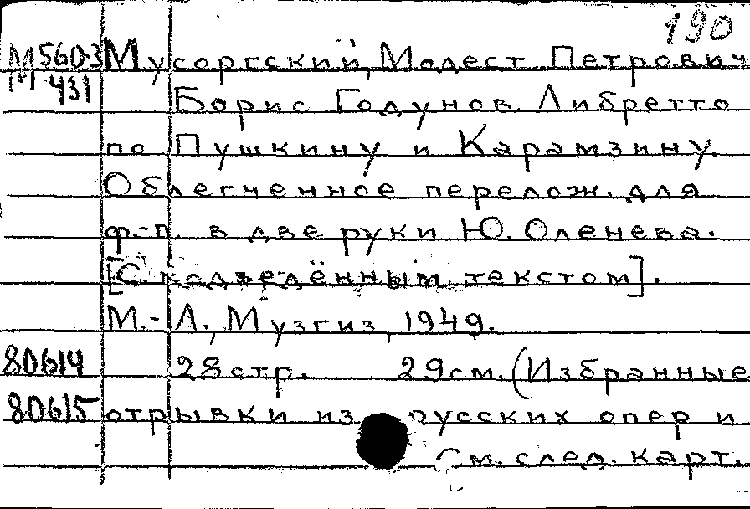 190
М5603 Мусоргский, Модест Петрович
М-431
Борис Годунов. Либретто
по Пушкину и Карамзину.
Облегченное перелож. для
ф.-п. в две руки Ю. Оленева.
[С подведённым текстом].
М.-Л., Музгиз, 1949.
80614 28 стр. 29 см. (Избранные
80615 отрывки из русских опер и
См. след. карт.